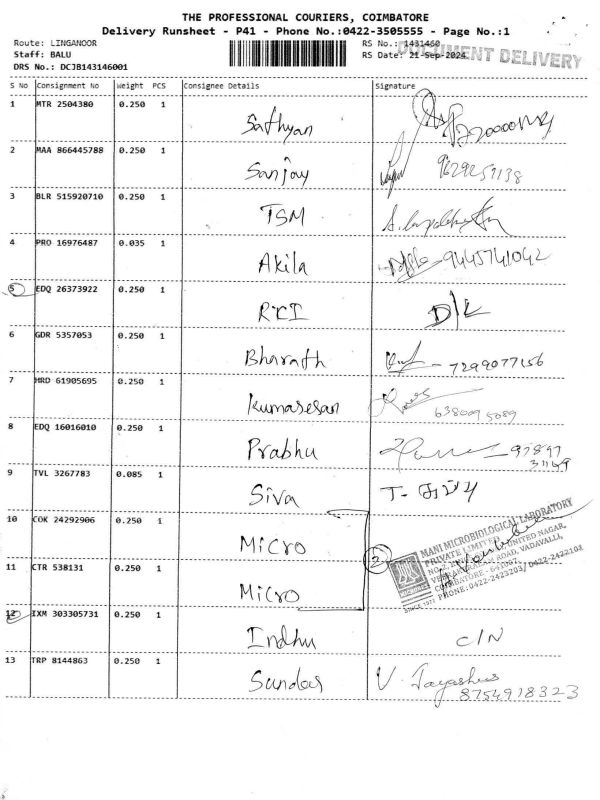 THE PROFESSIONAL COURIERS, COIMBATORE
Delivery Runsheet - P41 - Phone No.:0422-3505555 - Page No.:1
Route: LINGANOOR
RS No.: 1431460
Staff: BALU
RS Date: 21-Sep-2024
DOCUMENT DELIVERY
DRS No.: DCJB143146001
S No Consignment No Weight PCS Consignee Details Signature
1 MTR 2504380 0.250 1 Sathyan
2 MAA 866445788 0.250 1 Sanjay 9629251138
3 BLR 515920710 0.250 1 TSM
4 PRO 16976487 0.035 1 Akila 9445741042
5 EDQ 26373922 0.250 1 RKI D/K
6 GDR 5357053 0.250 1 Bharath - 7299077156
7 HRD 61905695 0.250 1 Kumaresan 6380095089
8 EDQ 16016010 0.250 1 Prabhu 97897
31149
9 TVL 3267783 0.085 1 Siva
10 COK 24292906 0.250 1 Micro 2
MANI MICROBIOLOGICAL LABORATORY
PRIVATE LIMITED
UNITED NAGAR,
ROAD, VADAVALLI,
COIMBATORE - 641
PHONE: 0422-2423203/ 0422-2422103
SINCE 1977
11 CTR 538131 0.250 1 Micro
12 IXM 303305731 0.250 1 Indhu C/N
13 TRP 8144863 0.250 1 Sundar V. Jayashree
8754918323